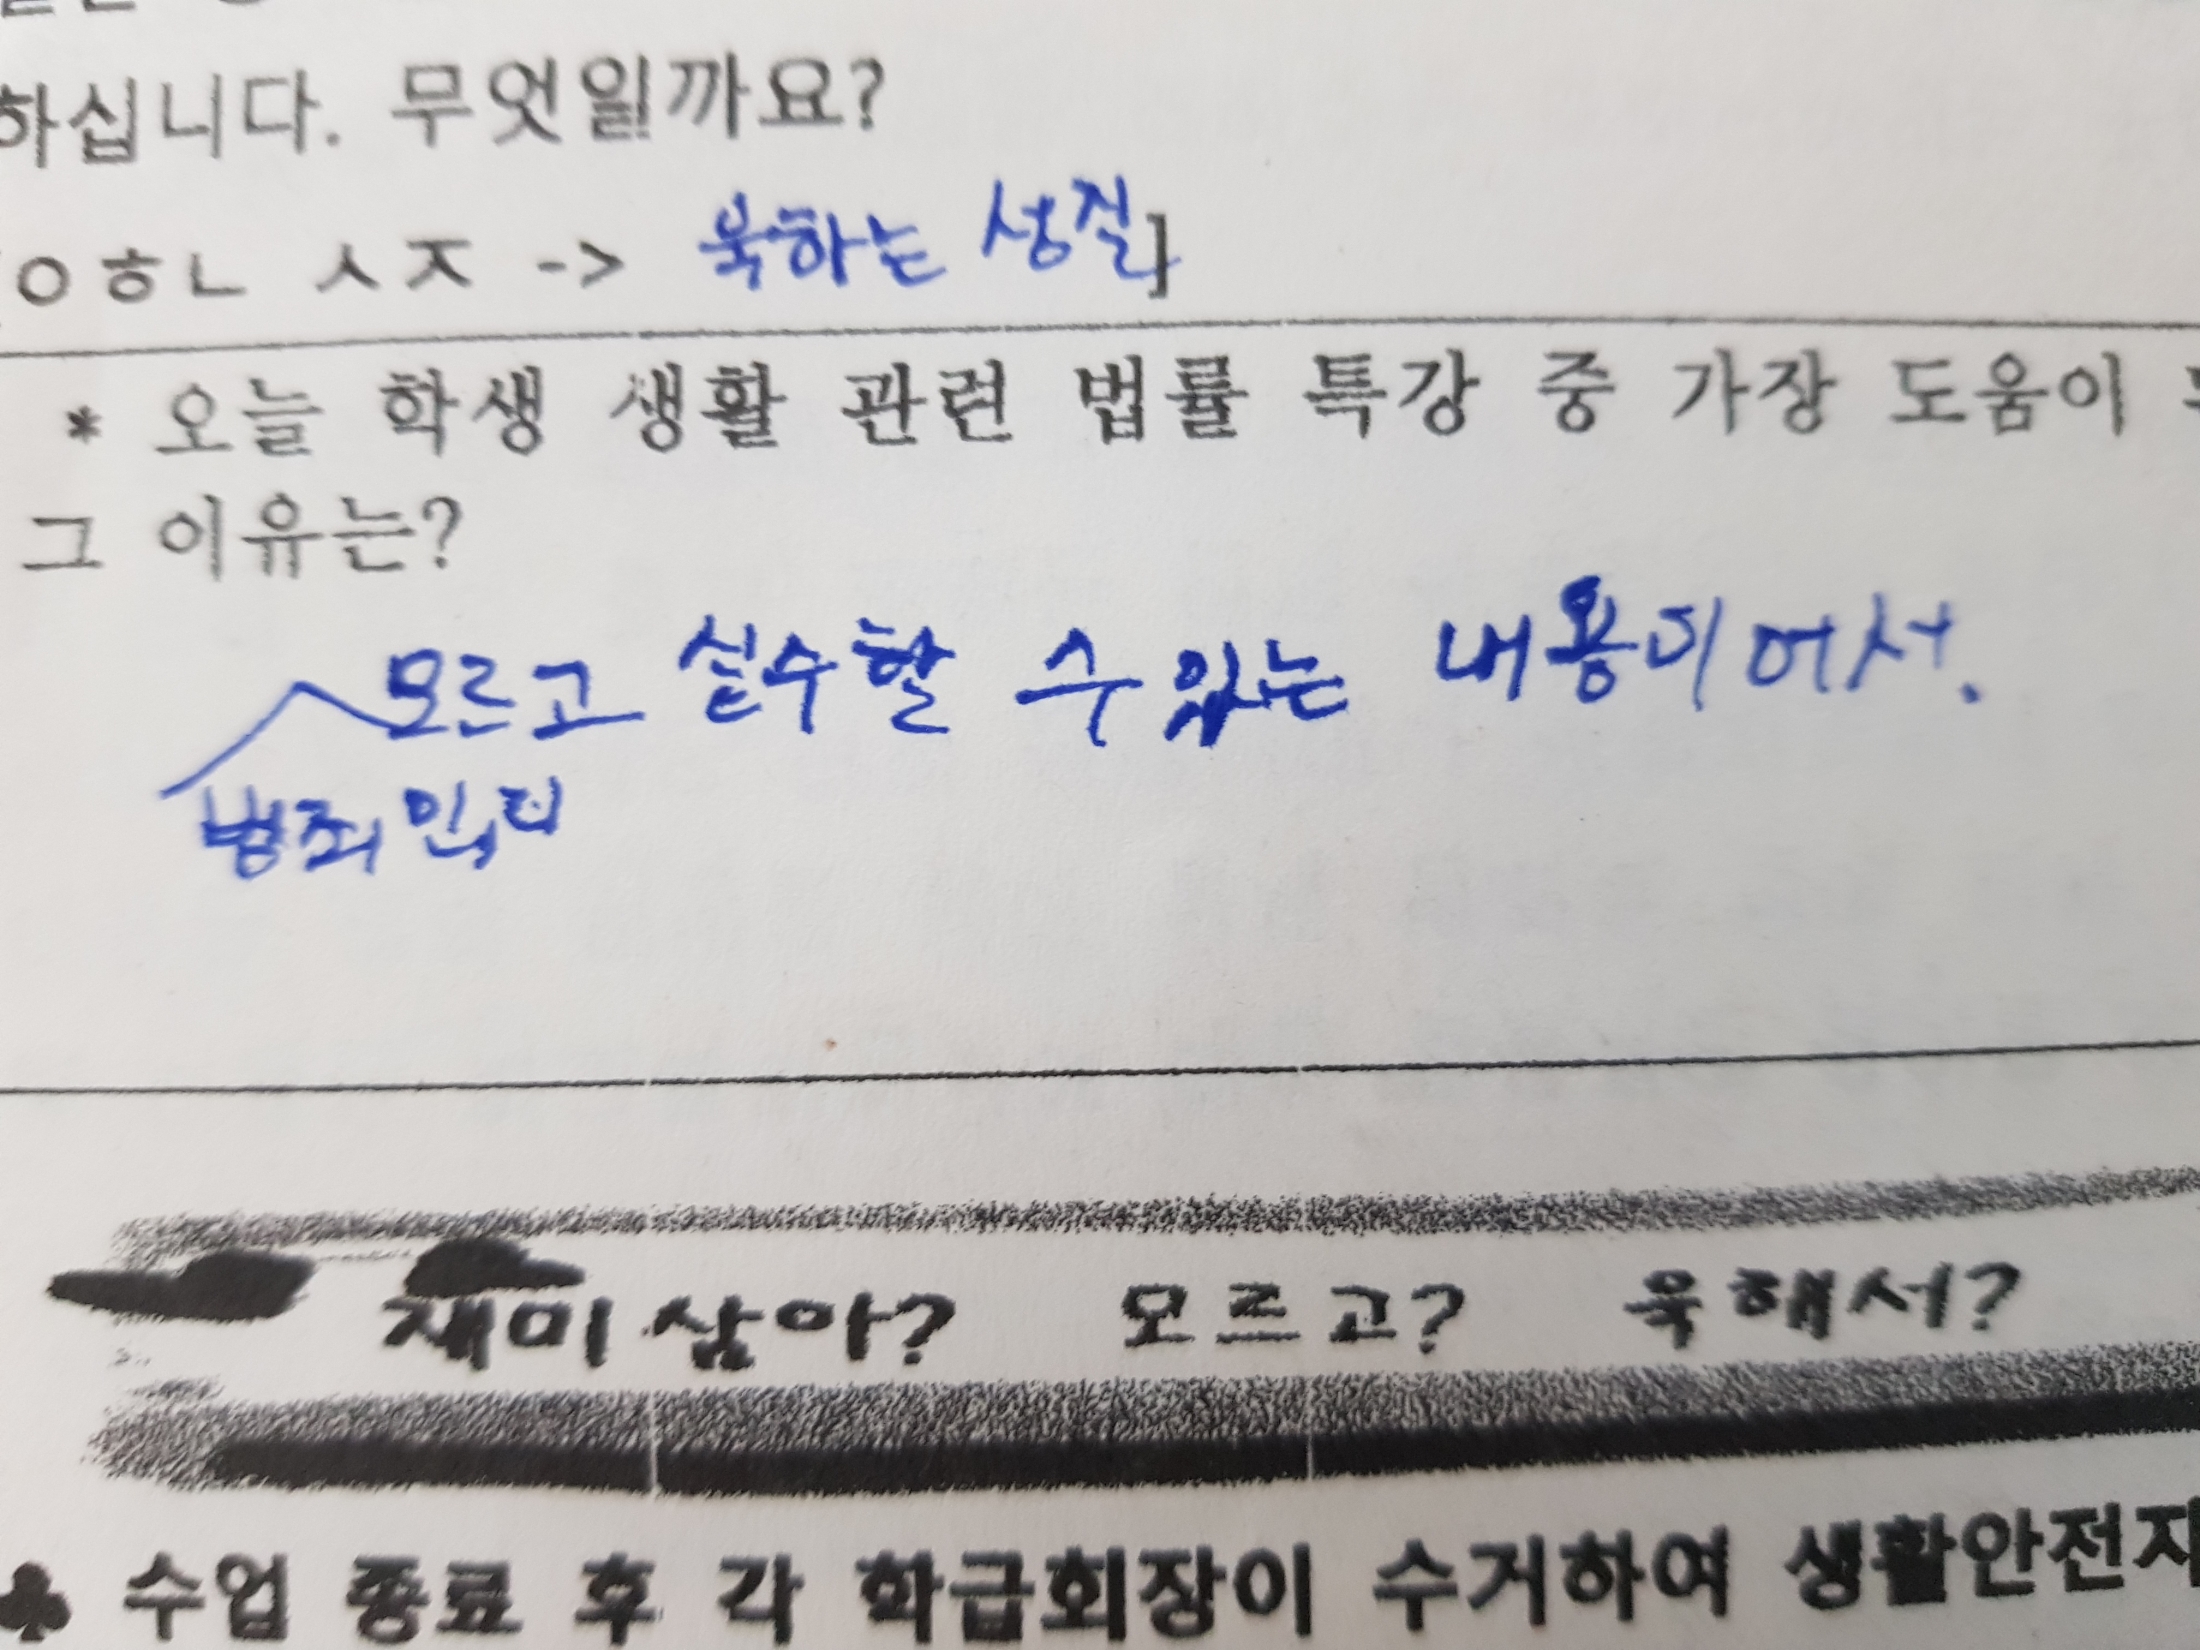 하십니다. 무엇일까요?
ㅇㅎㄴ ㅅㅈ -> 욱하는 성질]
* 오늘 학생 생활 관련 법률 특강 중 가장 도움이
그 이유는?
모르고 실수할 수 있는 내용이어서.
범죄인지
재미삼아? 모르고? 욱해서?
♣ 수업 종료 후 각 학급회장이 수거하여 생활안전자